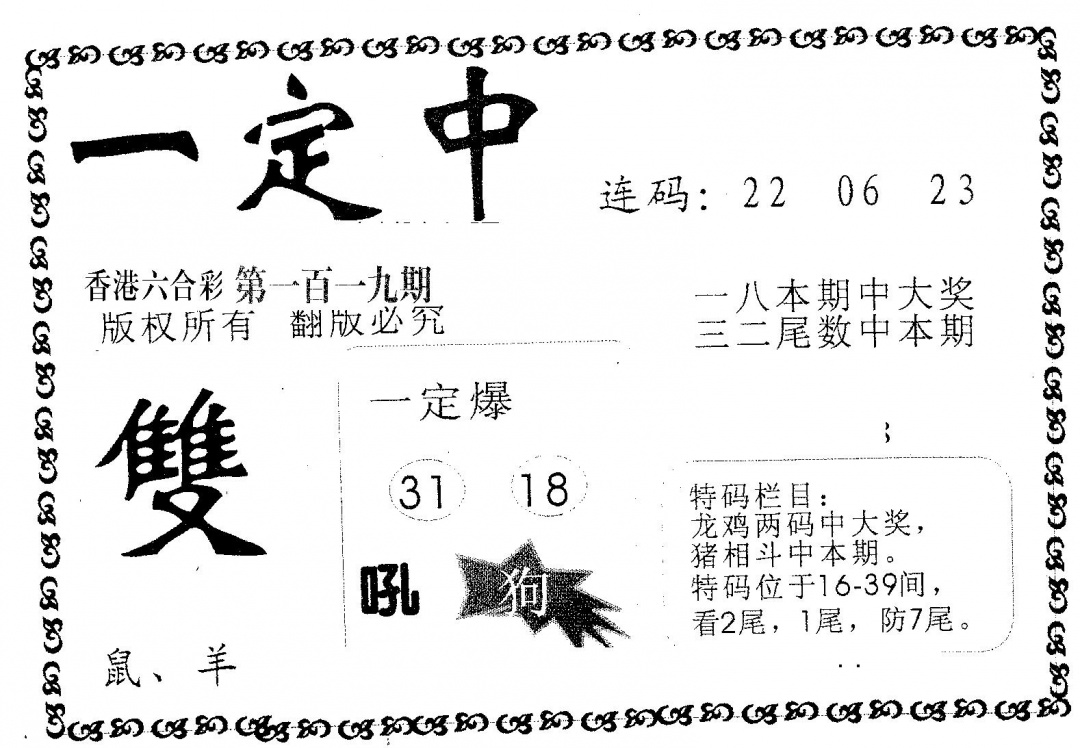 一定中
连码：22 06 23
香港六合彩第一百一十九期
版权所有 翻版必究
一八本期中大奖
三二尾数中本期
雙
一定爆
31 18
吼 狗
特码栏目：
龙鸡两码中大奖，
猪相斗中本期。
特码位于16-39间，
看2尾，1尾，防7尾。
鼠、羊